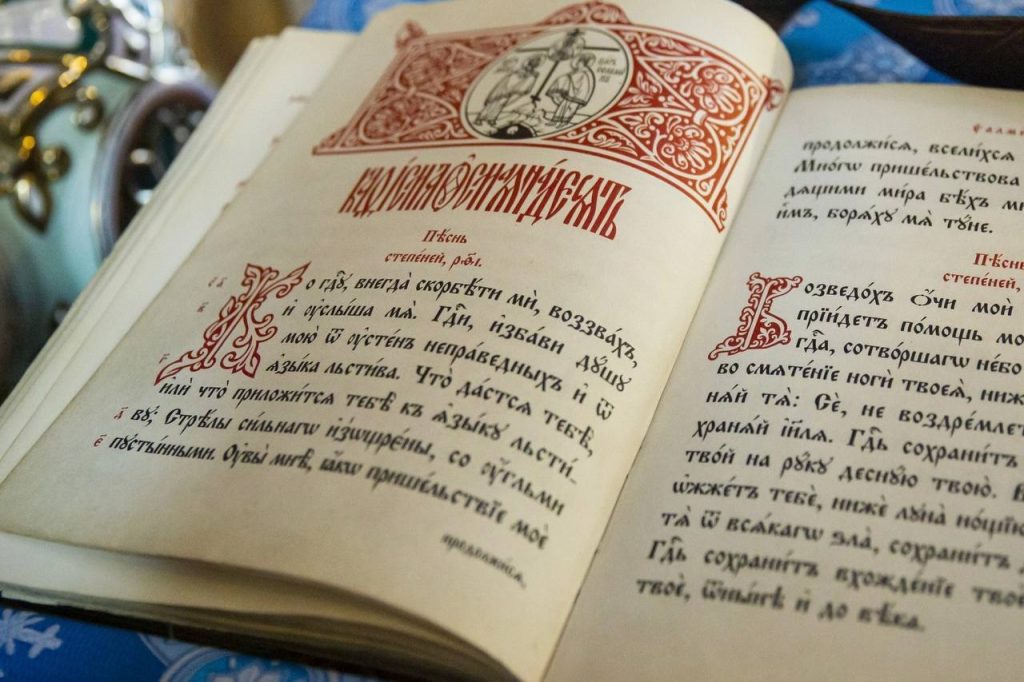 Каѳі́сма ѻ҆смаѧна́десѧть
Пѣ́снь
степе́ней, р҃ѳ҃і.
Ко гдⷭ҇ꙋ, внегда̀ скорбѣ́ти мѝ, воззва́хъ,
и҆ ᲂу҆слы́ша мѧ̀. Гдⷭ҇и, и҆зба́ви дꙋ́шꙋ
мою̀ ѿ ᲂу҆сте́нъ непра́ведныхъ и҆ ѿ
ѧ҆зы́ка льсти́ва. Что̀ да́стсѧ тебѣ̀,
и҆лѝ что̀ приложи́тсѧ тебѣ̀ къ ѧ҆зы́кꙋ льсти́-
вꙋ; Стрѣ́лы си́льнагѡ и҆зѡщрє́ны, со ᲂу҆́гльми
пꙋсты́нными. Оу҆вы̀ мнѣ̀, ꙗ҆́кѡ прише́льствїе моѐ
продолжи́сѧ,
Ѱало́м
продолжи́сѧ, всели́хсѧ
Мно́гѡ прише́льствова
дѧщими ми́ра бѣ́хъ ми
и҆̀мъ, борѧ́хꙋ мѧ̀ тꙋ́не.
Пѣ́снь
степе́ней,
Возведо́хъ ѻ҆́чи моѝ
прїи́детъ по́мощь мо
гдⷭ҇а, сотво́ршагѡ не́бо
во смѧте́нїе ногѝ твоеѧ̀, ниж
нѧ́й тѧ̀: Сѐ, не воздре́млет
хранѧ́й і҆и҃лѧ. Гдⷭ҇ь сохрани́тъ
тво́й на рꙋ́кꙋ деснꙋ́ю твою̀. В
ѡ҆жже́тъ тебѐ, нижѐ лꙋна̀ но́щїю
тѧ̀ ѿ всѧ́кагѡ ѕла̀, сохрани́тъ
Гдⷭ҇ь сохрани́тъ вхожде́нїе твоѐ
твоѐ, ѿны́нѣ и҆ до вѣ́ка.